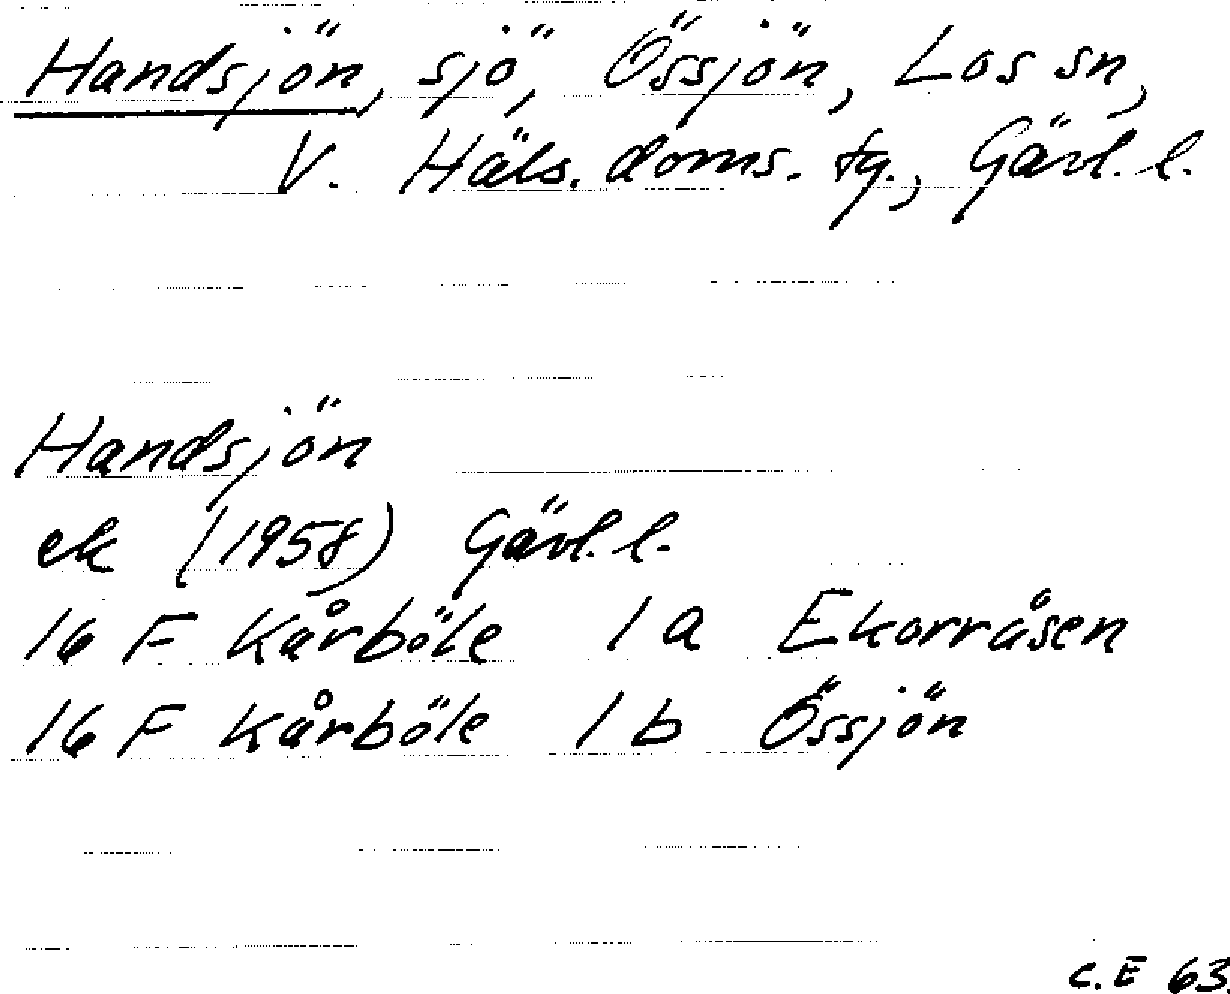 Handsjön, sjö, Össjön, Los sn,
V. Häls. doms. tg., Gävl. l.
Handsjön
ek (1958) Gävl. l.
16 F Kårböle 1 a Ekorråsen
16 F Kårböle 1 b Össjön
C.E 63.